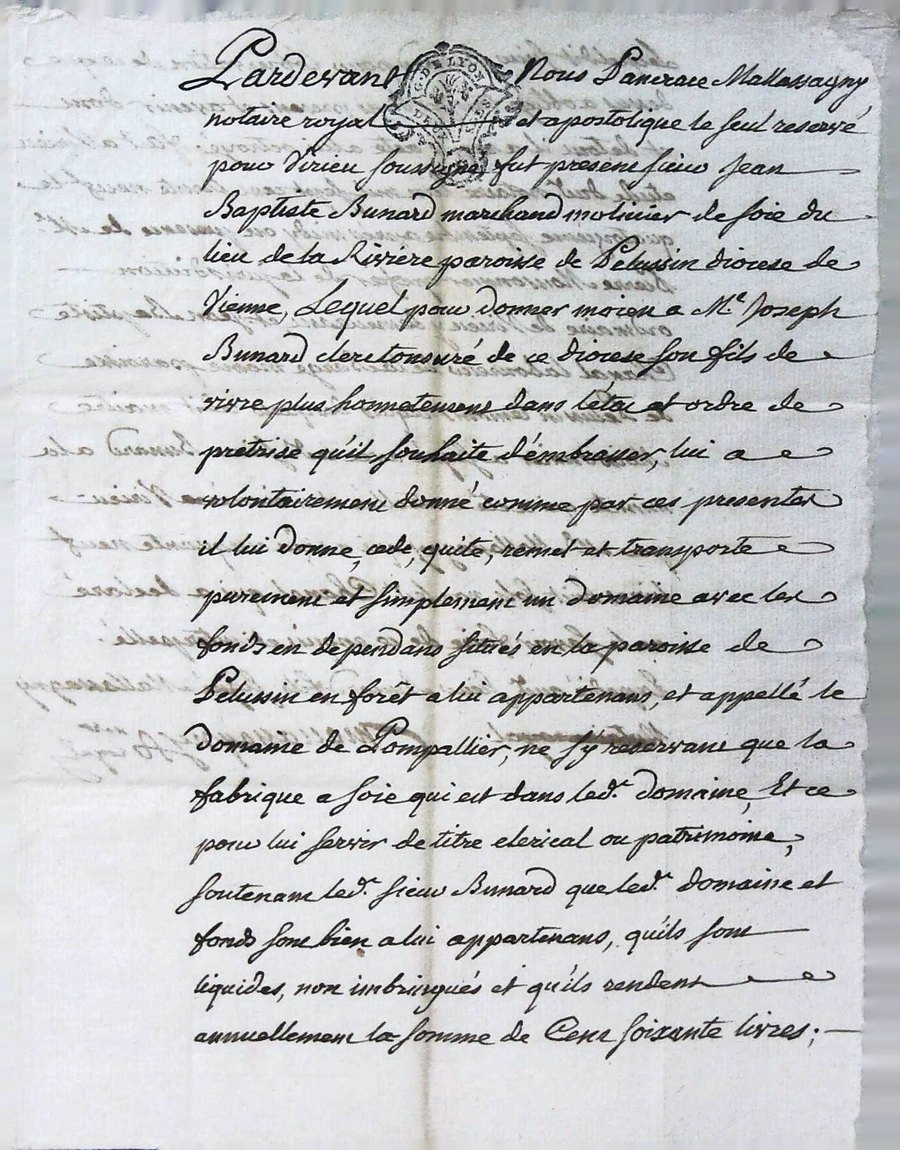 Pardevant Nous Pancrace Mallassagny
notaire royal et apostolique le seul reservé
pour Virieu soussigné fut present sieur Jean
Baptiste Bunard marchand molinier de soie du
lieu de la Riviére paroisse de Pelussin diocese de
Vienne, Lequel pour donner moien a Mᵉ Joseph
Bunard clerc tonsuré de ce diocese son fils de
vivre plus honnetement dans l'état et ordre de
prétrise qu'il souhaite d'émbrasser, lui a
volontairement donné comme par ces presentes
il lui donne, cede, quite, remet et transporte
purement et simplement un domaine avec les
fonds en dependans situés en la paroisse de
Pelussin en forêt a lui appartenans, et appellé le
domaine de Pompallier, ne s'y reservant que la
fabrique a soie qui est dans ledᵗ. domaine, Et ce
pour lui servir de titre clerical ou patrimoine,
soutenant ledᵗ. sieur Bunard que ledᵗ. domaine et
fonds sont bien a lui appartenans, qu'ils sont
liquides, non imbringués et qu'ils rendent
annuellement la somme de Cent soixante livres;
G. DE LYON